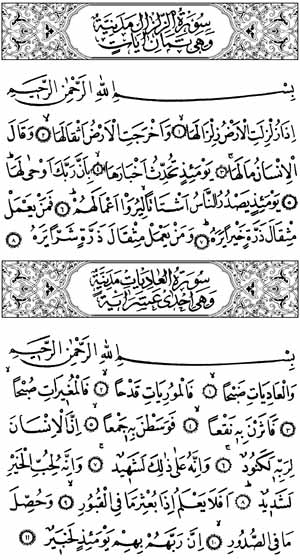 سُورَةُ الزِّلْزَالِ مَدَنِيَّةٌ
وَهِيَ ثَمَانُ آيَاتٍ
بِسْمِ اللهِ الرَّحْمٰنِ الرَّحِيمِ
اِذَا زُلْزِلَتِ الْاَرْضُ زِلْزَالَهَاۙ ﴿١﴾ وَاَخْرَجَتِ الْاَرْضُ اَثْقَالَهَاۙ ﴿٢﴾ وَقَالَ
الْاِنْسَانُ مَالَهَاۚ ﴿٣﴾ يَوْمَئِذٍ تُحَدِّثُ اَخْبَارَهَاۙ ﴿٤﴾ بِاَنَّ رَبَّكَ اَوْحٰى لَهَاۜ
﴿٥﴾ يَوْمَئِذٍ يَصْدُرُ النَّاسُ اَشْتَاتًا لِيُرَوْا اَعْمَالَهُمْۜ ﴿٦﴾ فَمَنْ يَعْمَلْ
مِثْقَالَ ذَرَّةٍ خَيْرًا يَرَهُۜ ﴿٧﴾ وَمَنْ يَعْمَلْ مِثْقَالَ ذَرَّةٍ شَرًّا يَرَهُ ﴿٨﴾
سُورَةُ الْعَادِيَاتِ مَدَنِيَّةٌ
وَهِيَ اِحْدٰى عَشَرَ اٰيَةً
بِسْمِ اللهِ الرَّحْمٰنِ الرَّحِيمِ
وَالْعَادِيَاتِ ضَبْحًاۙ ﴿١﴾ فَالْمُورِيَاتِ قَدْحًاۙ ﴿٢﴾ فَالْمُغِيرَاتِ صُبْحًاۙ
﴿٣﴾ فَاَثَرْنَ بِهِ نَقْعًاۙ ﴿٤﴾ فَوَسَطْنَ بِهِ جَمْعًاۙ ﴿٥﴾ اِنَّ الْاِنْسَانَ
لِرَبِّهِ لَكَنُودٌۚ ﴿٦﴾ وَاِنَّهُ عَلٰى ذٰلِكَ لَشَهِيدٌۚ ﴿٧﴾ وَاِنَّهُ لِحُبِّ الْخَيْرِ
لَشَدِيدٌۜ ﴿٨﴾ اَفَلَا يَعْلَمُ اِذَا بُعْثِرَ مَا فِي الْقُبُورِۙ ﴿٩﴾ وَحُصِّلَ
مَا فِي الصُّدُورِۙ ﴿١٠﴾ اِنَّ رَبَّهُمْ بِهِمْ يَوْمَئِذٍ لَخَبِيرٌ ﴿١١﴾